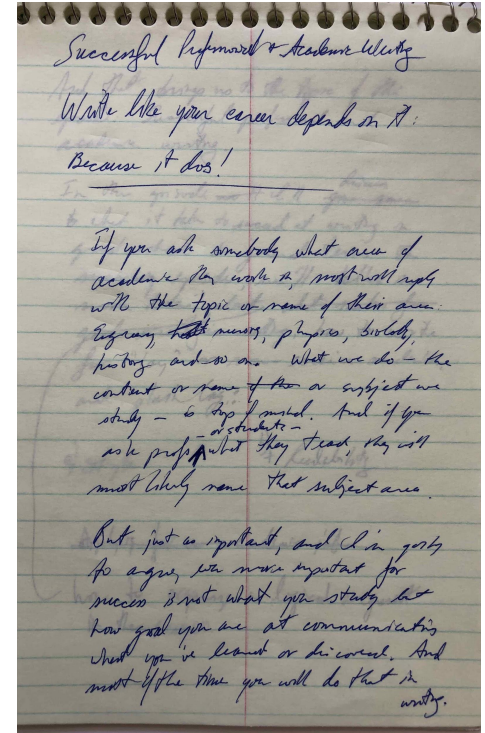 Successful Professional + Academic Writing
Write like your career depends on it:
Because it does!
If you ask somebody what area of
academic they work in, most will reply
with the topic or name of their area:
nursing, physics, biology,
history and so on. What we do - the
content or name of the or subject we
study - is top of mind. And if you
- or students -
ask profs what they teach, they will
most likely name that subject area.
But just as important, and I'm going
to argue, even more important for
success is not what you study but
how good you are at communicating
what you've learned or discovered. And
most of the time you will do that in
writing.